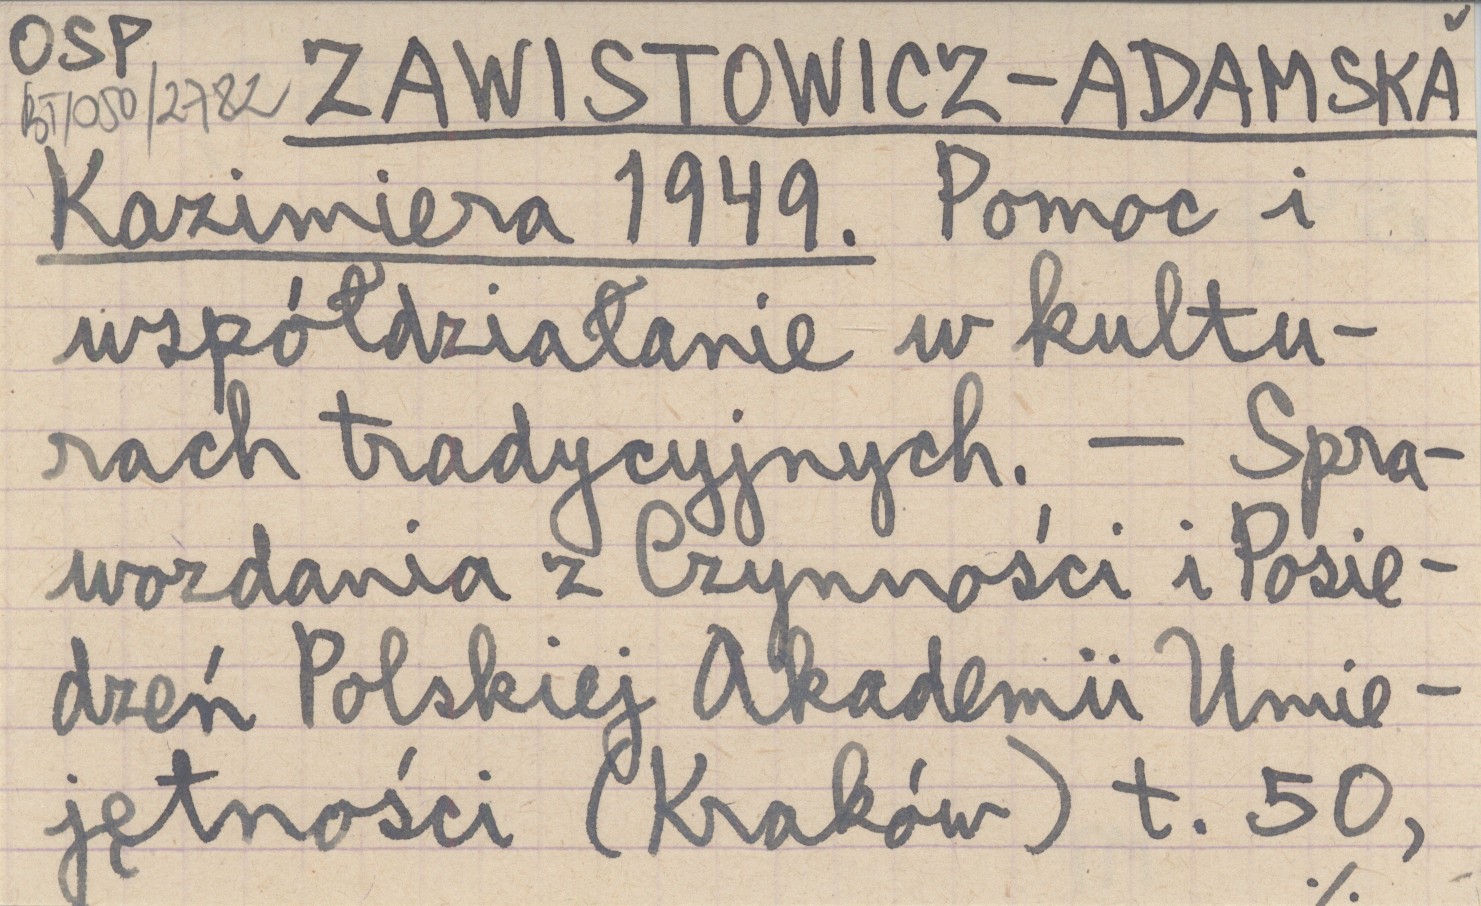 OSP
BT/050/2782
ZAWISTOWICZ-ADAMSKA
Kazimiera 1949. Pomoc i
współdziałanie w kultu-
rach tradycyjnych. — Spra-
wozdania z Czynności i Posie-
dzeń Polskiej Akademii Umie-
jętności (Kraków) t. 50,
./.